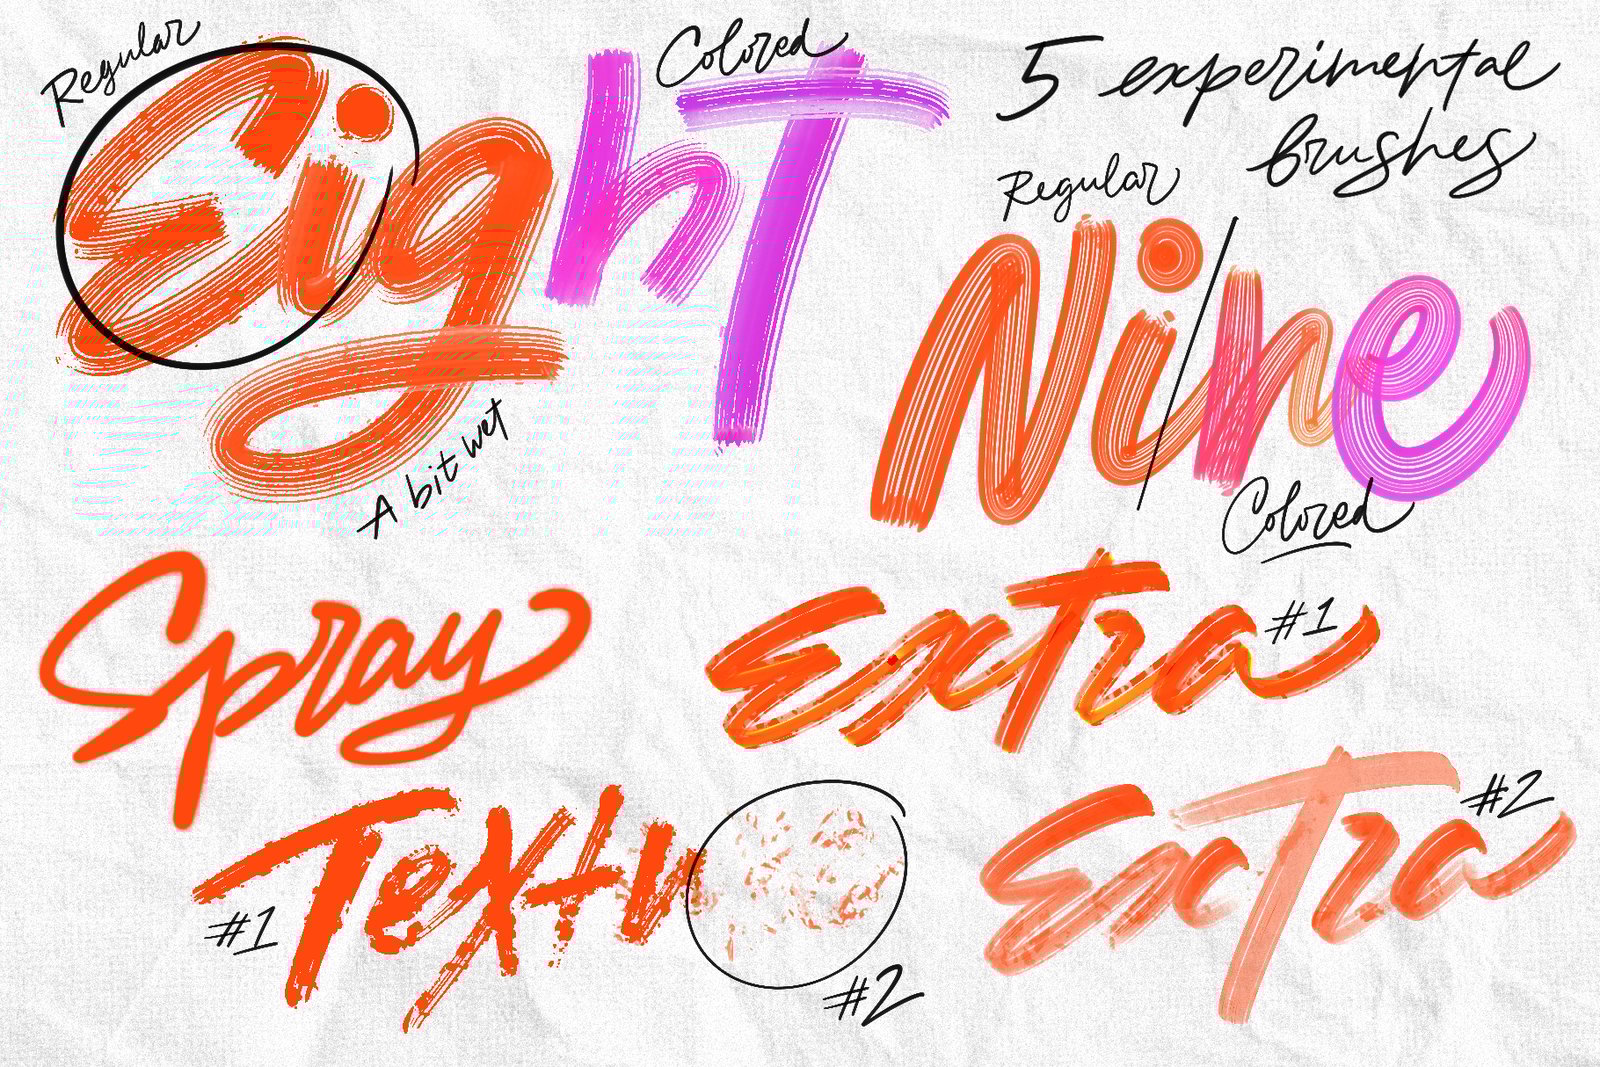 Regular
Colored
EighT
A bit wet
5 experimental
brushes
Regular
Nine
Colored
Spray
Extra
#1
Textu
#1
#2
Extra
#2